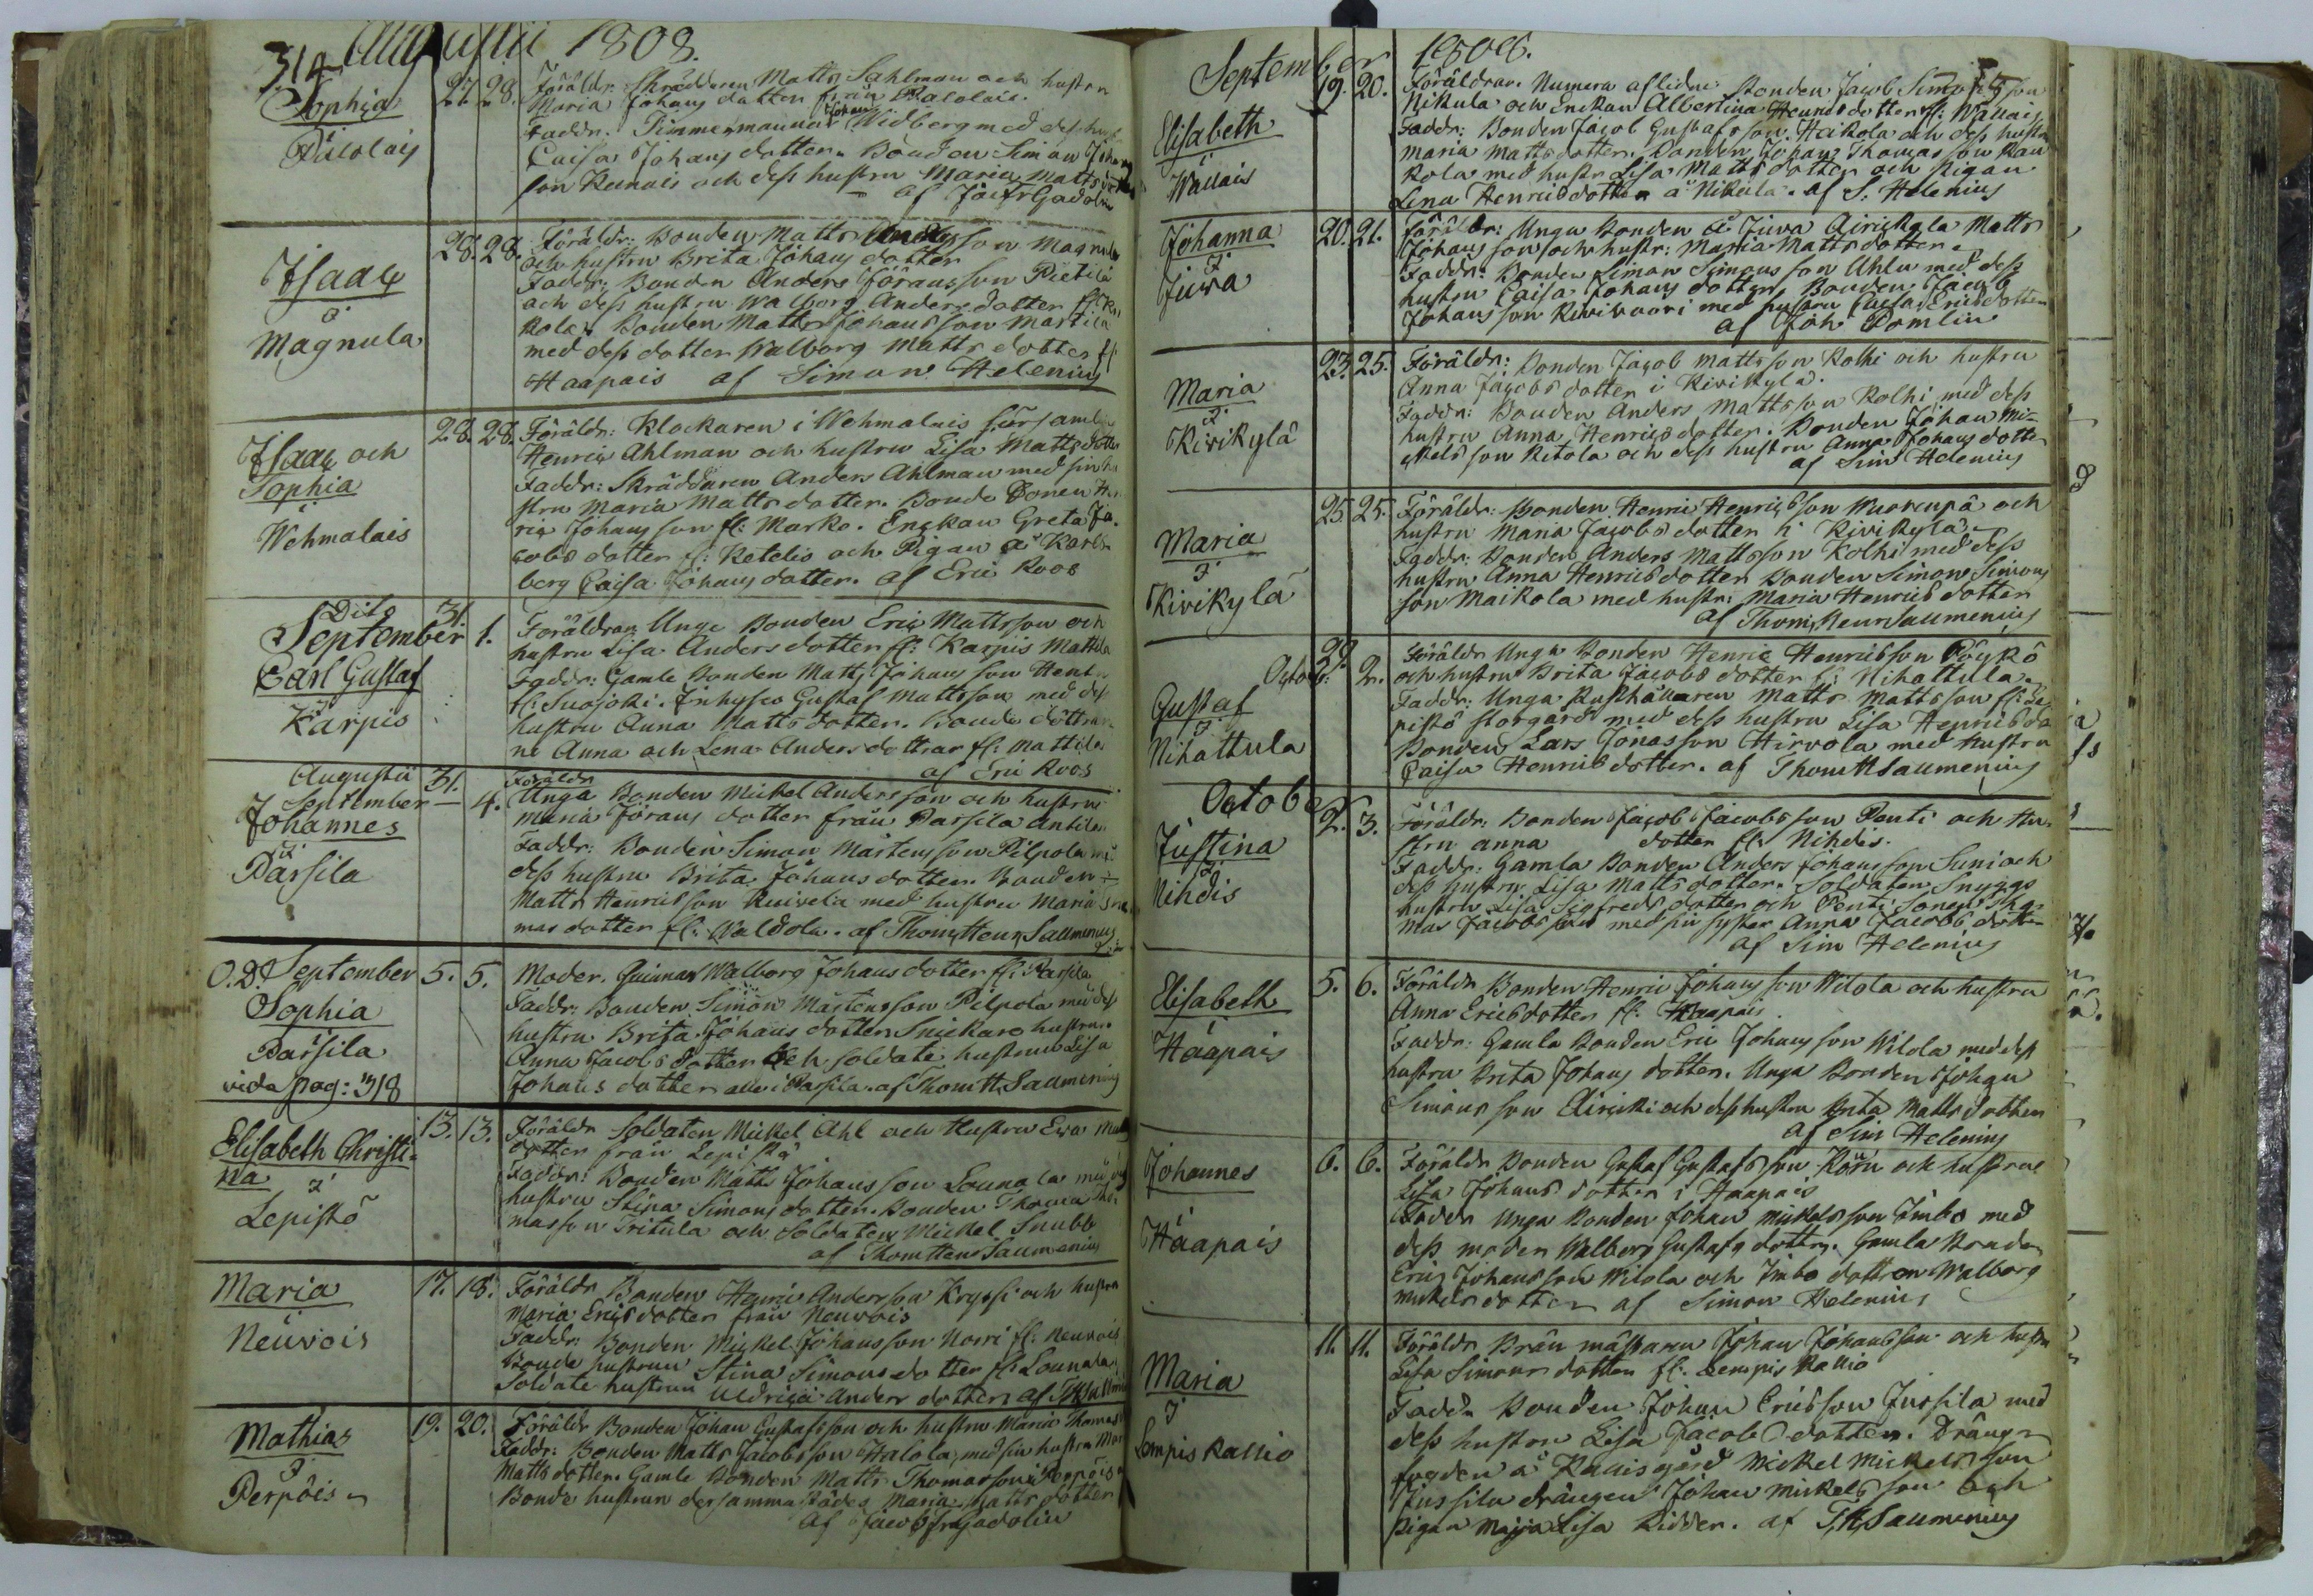 314 Augustii 1808.
Sophia
27. 28. Föräldr. Skräddaren Matts Sahlman och hustru
Maria Johans dotter från
Faddr. Timmermannen Johan Widberg med dess hust
Caisa Johans dotter. Bonden Simon Johans
son och dess hustru Maria Matts dotter
af Jac: Fr Gadolin
Isaac
i
Magnula
28. 28. Föräldr: Bonden Matts Andersson Magnula
och hustru Brita Johans dotter
Faddr: Bonden Anders Göransson Pietilä
och dess hustru Walborg Anders dotter fr:
kola. Bonden Matts Johansson Martila
med dess dotter Walborg Matts dotter fr
Haapais af Simon Helenius
Isaac och
Sophia
i
Wehmalais
28. 28. Föräldr: Klockaren i Wehmalais församling
Henric Ahlman och hustru Lisa Matts dotter
Faddr: Skräddaren Anders Ahlman med sin hu
stru Maria Matts dotter. Bonde Sonen Hen
ric Johans son fr: Marko. Enckan Greta Ja
cobs dotter fr: Ketelis och Pigan å Karls
berg Caisa Johans dotter. af Eric Roos
Dito
September
Carl Gustaf
i
Karpis
31. 1. Föräldrar Unge Bonden Eric Mattsson och
hustru Lisa Anders dotter fr: Karpis Mattila
Faddr: Gamle Bonden Matts Johans son
fr: Suojoki. Inhyses Gustaf Mattsson med dess
hustru Anna Matts dotter. Bonde döttrar
ne Anna och Lena Anders dottrar fr: Mattila
af Eric Roos
Augustii
September
Johannes
i
Pärsila
31. 4. Föräldr
Unga Bonden Mickel Anders son och hustru
Maria Görans dotter från Parsila Antila
Faddr: Bonden Simon Mårtensson Pilpola med
dess hustru Brita Johans dotter. Bonden
Matts Henricsson Kuivela med hustru Maria
mas dotter fr: Waldola. af Thom: Henr Saumenius
O.Ä. September
Sophia
i
Pärsila
vida pag: 318
5. 5. Moder. Quinnan Walborg Johans dotter fr: Parsila
Faddr: Bonden Simon Mårtensson Pilpola med dess
hustru Brita Johans dotter. Snickare hustrun
Anna Jacobs dotter och soldate hustrun Lisa
Johans dotter alla i Parsila. af Thom H Saumenius
Elisabeth Christi-
na i
Lepistö
13. 13. Föräldr Soldaten Mickel Ahl och Hustru Ewa Matts
dotter från Lepistö
Faddr: Bonden Matts Johansson Lounala med dess
hustru Stina Simons dotter. Bonden Thomas Tho
masson Tritula och Soldaten Mickel Snubb
af Thom Henr Saumenius
Maria
i
Neuvois
17. 18. Föräldr Bonden Henric Andersson Kryssi och hustru
Maria Erics dotter från Neuvois
Faddr: Bonden Mickel Johansson Norri fr: Neuvois
Bonde hustrun Stina Simons dotter fr: Lounala
Soldate hustrun Uldrica Anders dotter af
Mathias
i
Perpöis
19. 20. Föräldr Bonden Johan Gustafsson och hustru Maria Thomas
Faddr: Bonden Matts Jacobsson Halola, med sin hustru Mar
Matts dotter. Gamle Bonden Matts Thomasson i Perpöis
Bonde hustrun dersammastädes Maria Matts dotter
af Jacob Fr Gadolin
September 1808.
Elisabeth
i
Wallais
19. 20. Föräldrar. Numera aflidne Bonden Jacob Simonsson
Nikula och Enckan Albertina Henrics dotter fr: Wallais
Faddr: Bonden Jacob Gustafsson Heikola och dess hustru
Maria Matts dotter. Bonden Johan Thomas son Kau
kola med hustr Lisa Matts dotter och Pigan
Lena Henrics dotter å Nikula. af S. Helenius
Johanna
i
Juva
20. 21. Föräldr: Unga Bonden å Juva Airickala Matts
Johans son och hustr: Maria Matts dotter.
Faddr: Bonden Simon Simons son Uhlu med dess
hustru Caisa Johans dotter, Bonden Jacob
Johans son Kivivuori med hustru Caisa Erics dotter
af Joh Pomlin
Maria
i
Kivikylä
23. 25. Föräldr: Bonden Jacob Mattsson Kolhi och hustru
Anna Jacobs dotter i Kivikylä.
Faddr: Bonden Anders Mattsson Kolhi med dess
hustru Anna Henrics dotter. Bonden Johan Mi-
ckels son Ketola och dess hustru Anna Johans dotter
af Sim Helenius
Maria
i
Kivikylä
25. 25. Föräldr: Bonden Henric Henricsson Wuorenpä och
hustru Maria Jacobs dotter i Kivikylä.
Faddr: Bonden Anders Mattsson Kolhi med dess
hustru Anna Henrics dotter Bonden Simon Simons
son Maikola med hustr: Maria Henrics dotter
af Thom Henr Saumenius
Octob:
Gustaf
i
Nihattula
29. 2. Föräldr Unga Bonden Henric Henricsson Pöykö
och hustru Brita Jacobs dotter fr: Nihattula.
Faddr: Unga Rusthållaren Matts Mattsson fr: Le
pistö storgård med dess hustru Lisa Henrics do
Bonden Lars Jonasson Hirvola med Hustru
Caisa Henrics dotter. af Thom H Saumenius
October
Justina
i
Nihdis
2. 3. Föräldr: Bonden Jacob Jacobsson Penti och Hu
stru Anna dotter fr: Nihdis.
Faddr: Gamla Bonden Anders Johansson Suni och
dess hustru Lisa Matts dotter. Soldaten Snyggs
hustru Lisa Sigfreds dotter och Penti Sonen Tho
mas Jacobsson med sin syster Anna Jacobs dotter
af Sim Helenius
Elisabeth
i
Haapais
5. 6. Föräldr Bonden Henric Johans son Wilola och hustru
Anna Erics dotter fr: Haapais.
Faddr: Gamla Bonden Eric Johans son Wilola med dess
hustru Brita Johans dotter. Unga Bonden Johan
Simons son Eiricki och dess hustru Brita Matts dotter
af Sim Helenius
Johannes
i
Haapais
6. 6. Föräldr Bonden Gustaf Gustafsson och hustrue
Lisa Johans dotter i Haapais
Faddr Unga Bonden Johan Mickelsson Imbo med
dess moder Walborg Gustafs dotter. Gamla Bonden
Eric Johansson Wilola och Imbo dottren Walborg
Mickels dotter af Simon Helenius
Maria
i
Lempis Kallio
11. 11. Föräldr Brän mästaren Johan Johansson och hustru
Lisa Simons dotter fr: Lempis Kallio
Faddr Bonden Johan Ericsson Jussila med
dess hustru Lisa Jacobs dotter. Drängs
fogden å Kallisgård Mickel Mickelsson
Jussila drängen Johan Mickelsson och
pigan Maja Lisa Ridder. af T,H,Saumenius